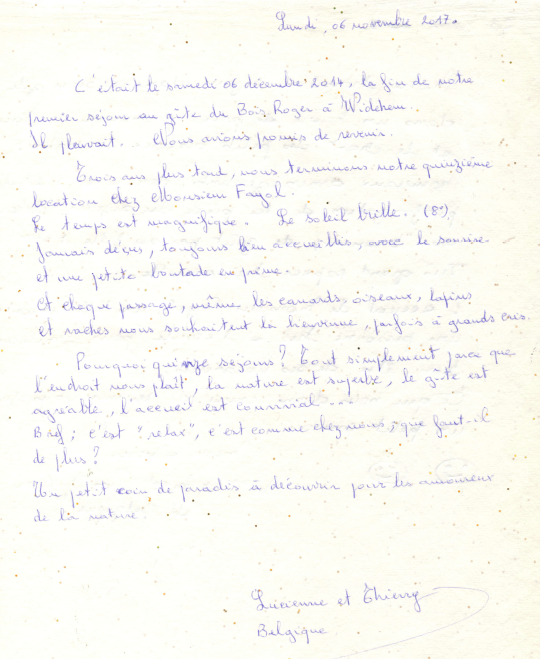 Lundi, 06 novembre 2017.
C'était le samedi 06 décembre 2014, la fin de notre
premier séjour au gîte du Bois Roger à Widehem.
Il pleuvait. Nous avions promis de revenir.
Trois ans plus tard, nous terminons notre quinzième
location chez Monsieur Fayol.
Le temps est magnifique. Le soleil brille. (8°)
Jamais déçus, toujours bien accueillis, avec le sourire
et une petite boutade en prime.
A chaque passage, même les canards, oiseaux, lapins
et vaches nous souhaitent la bienvenue, parfois à grands cris.
Pourquoi quinze séjours? Tout simplement parce que
l'endroit nous plaît, la nature est superbe, le gîte est
agréable, l'accueil est convivial....
Bref; c'est "relax", c'est comme chez nous, que faut-il
de plus?
Un petit coin de paradis à découvrir pour les amoureux
de la nature.
Lucienne et Thierry
Belgique